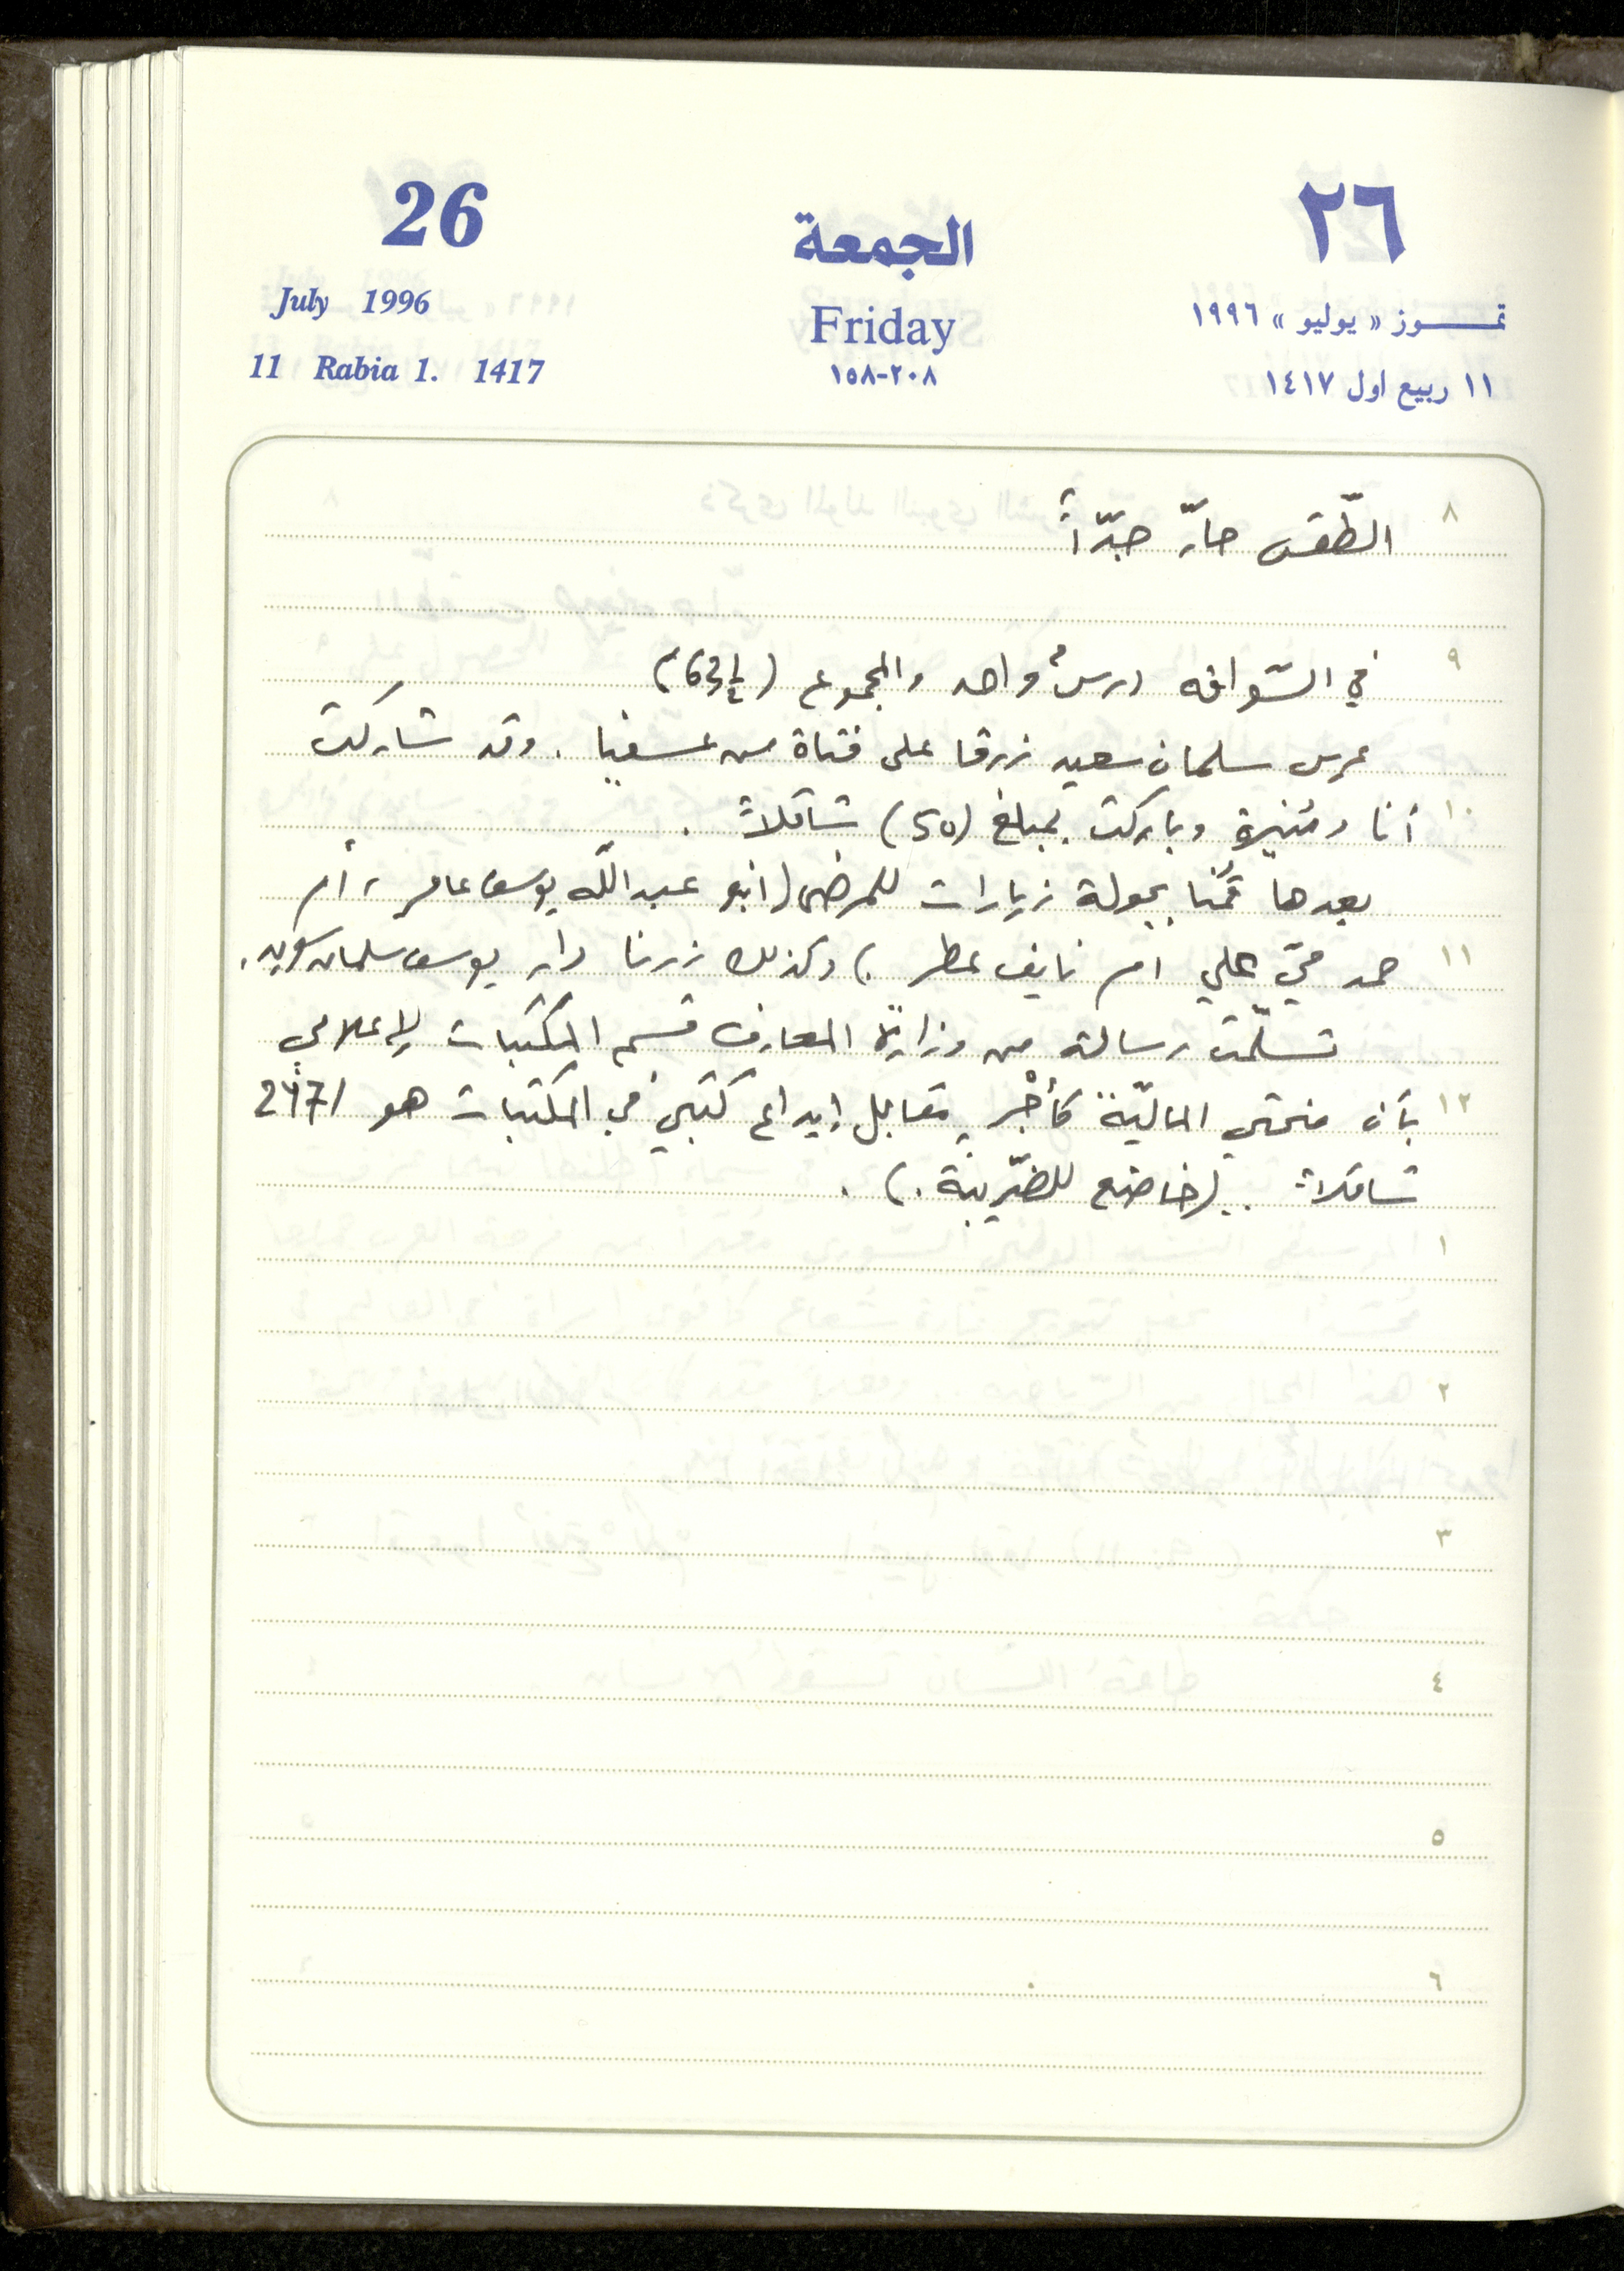 26
الجمعة
٢٦
July 1996
Friday
تمـــوز « يوليو » ١٩٩٦
11 Rabia 1. 1417
٢٠٨-١٥٨
١١ ربيع اول ١٤١٧
٨ الطّقس حارّ جدّاً
٩ في السّواقه درسٌ واحد والمجموع
عرس سلمان سعيد زرقا على فتاة من عسفيا. وقد شاركت
١٠ أنا ومنيرة وباركت بمبلغ (50) شاقلاً.
بعدها قُمنا بجولة زيارات للمرضى (ابو عبدالله يوسف عامر، أم
١١ حمد علي ام نايف عطر.) وكذلك زرنا دار يوسف سلمان سويد.
تسلّمت رسالة من وزارة المعارف قسم المكتبات لإعلامي
١٢ بأن منحتي الماليّة كأجْرٍ مقابل إيداع كتبي في المكتبات هو
شاقلاً. (خاضع للضّريبة.).
١
٢
٣
٤
٥
٦